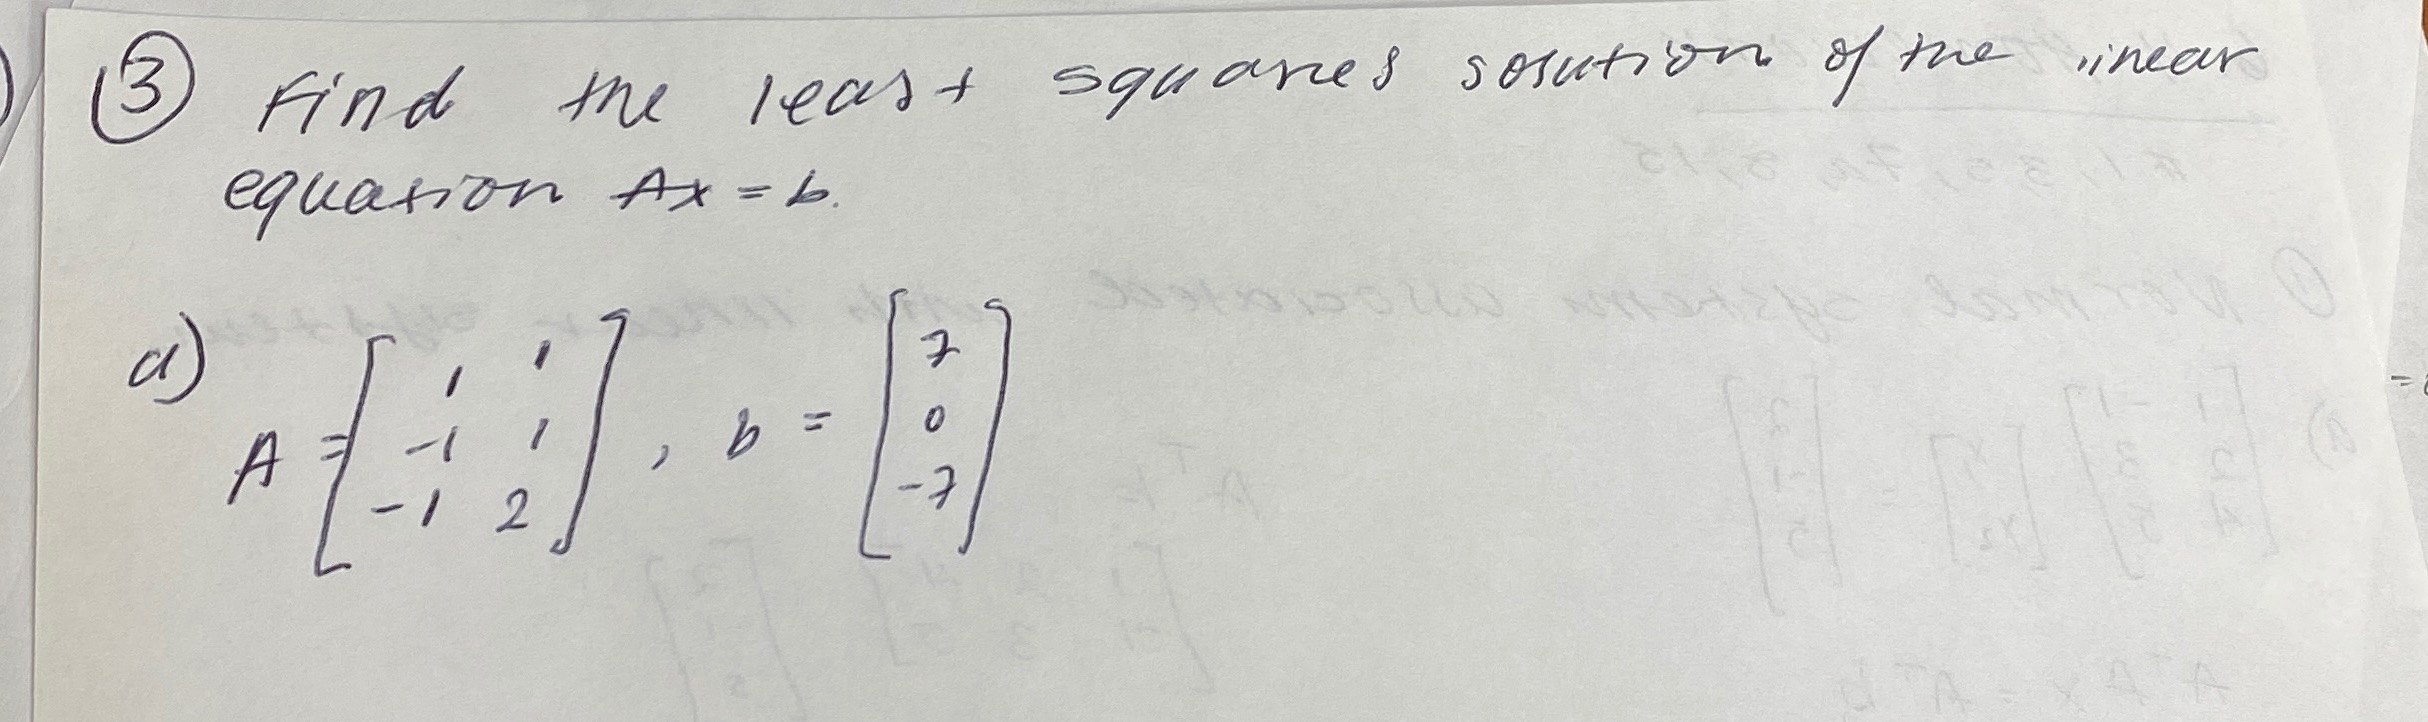 ③ Find the least squares solution of the linear
equation Ax = b.
a)
A = [1 1; -1 1; -1 2], b = [7; 0; -7]